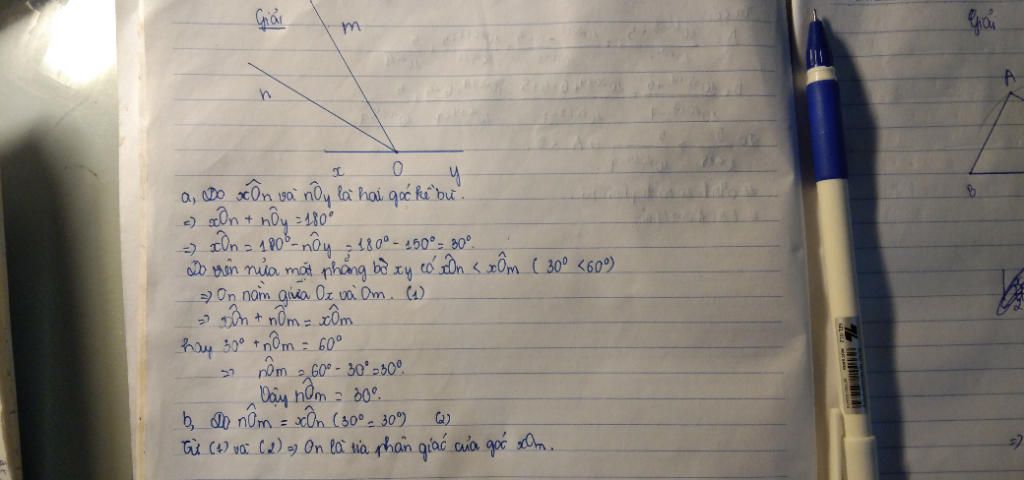 Giải
m
n
x O y
a, Do xÔn và nÔy là hai góc kề bù.
=> xÔn + nÔy = 180°
=> xÔn = 180° - nÔy = 180° - 150° = 30°.
Do trên nửa mặt phẳng bờ xy có xÔn < xÔm ( 30° < 60°)
=> On nằm giữa Ox và Om. (1)
=> xÔn + nÔm = xÔm
hay 30° + nÔm = 60°
=> nÔm = 60° - 30° = 30°.
Vậy nÔm = 30°.
b, Do nÔm = xÔn (30° = 30°) (2)
Từ (1) và (2) => On là tia phân giác của góc xOm.
Giải
A
B
=>